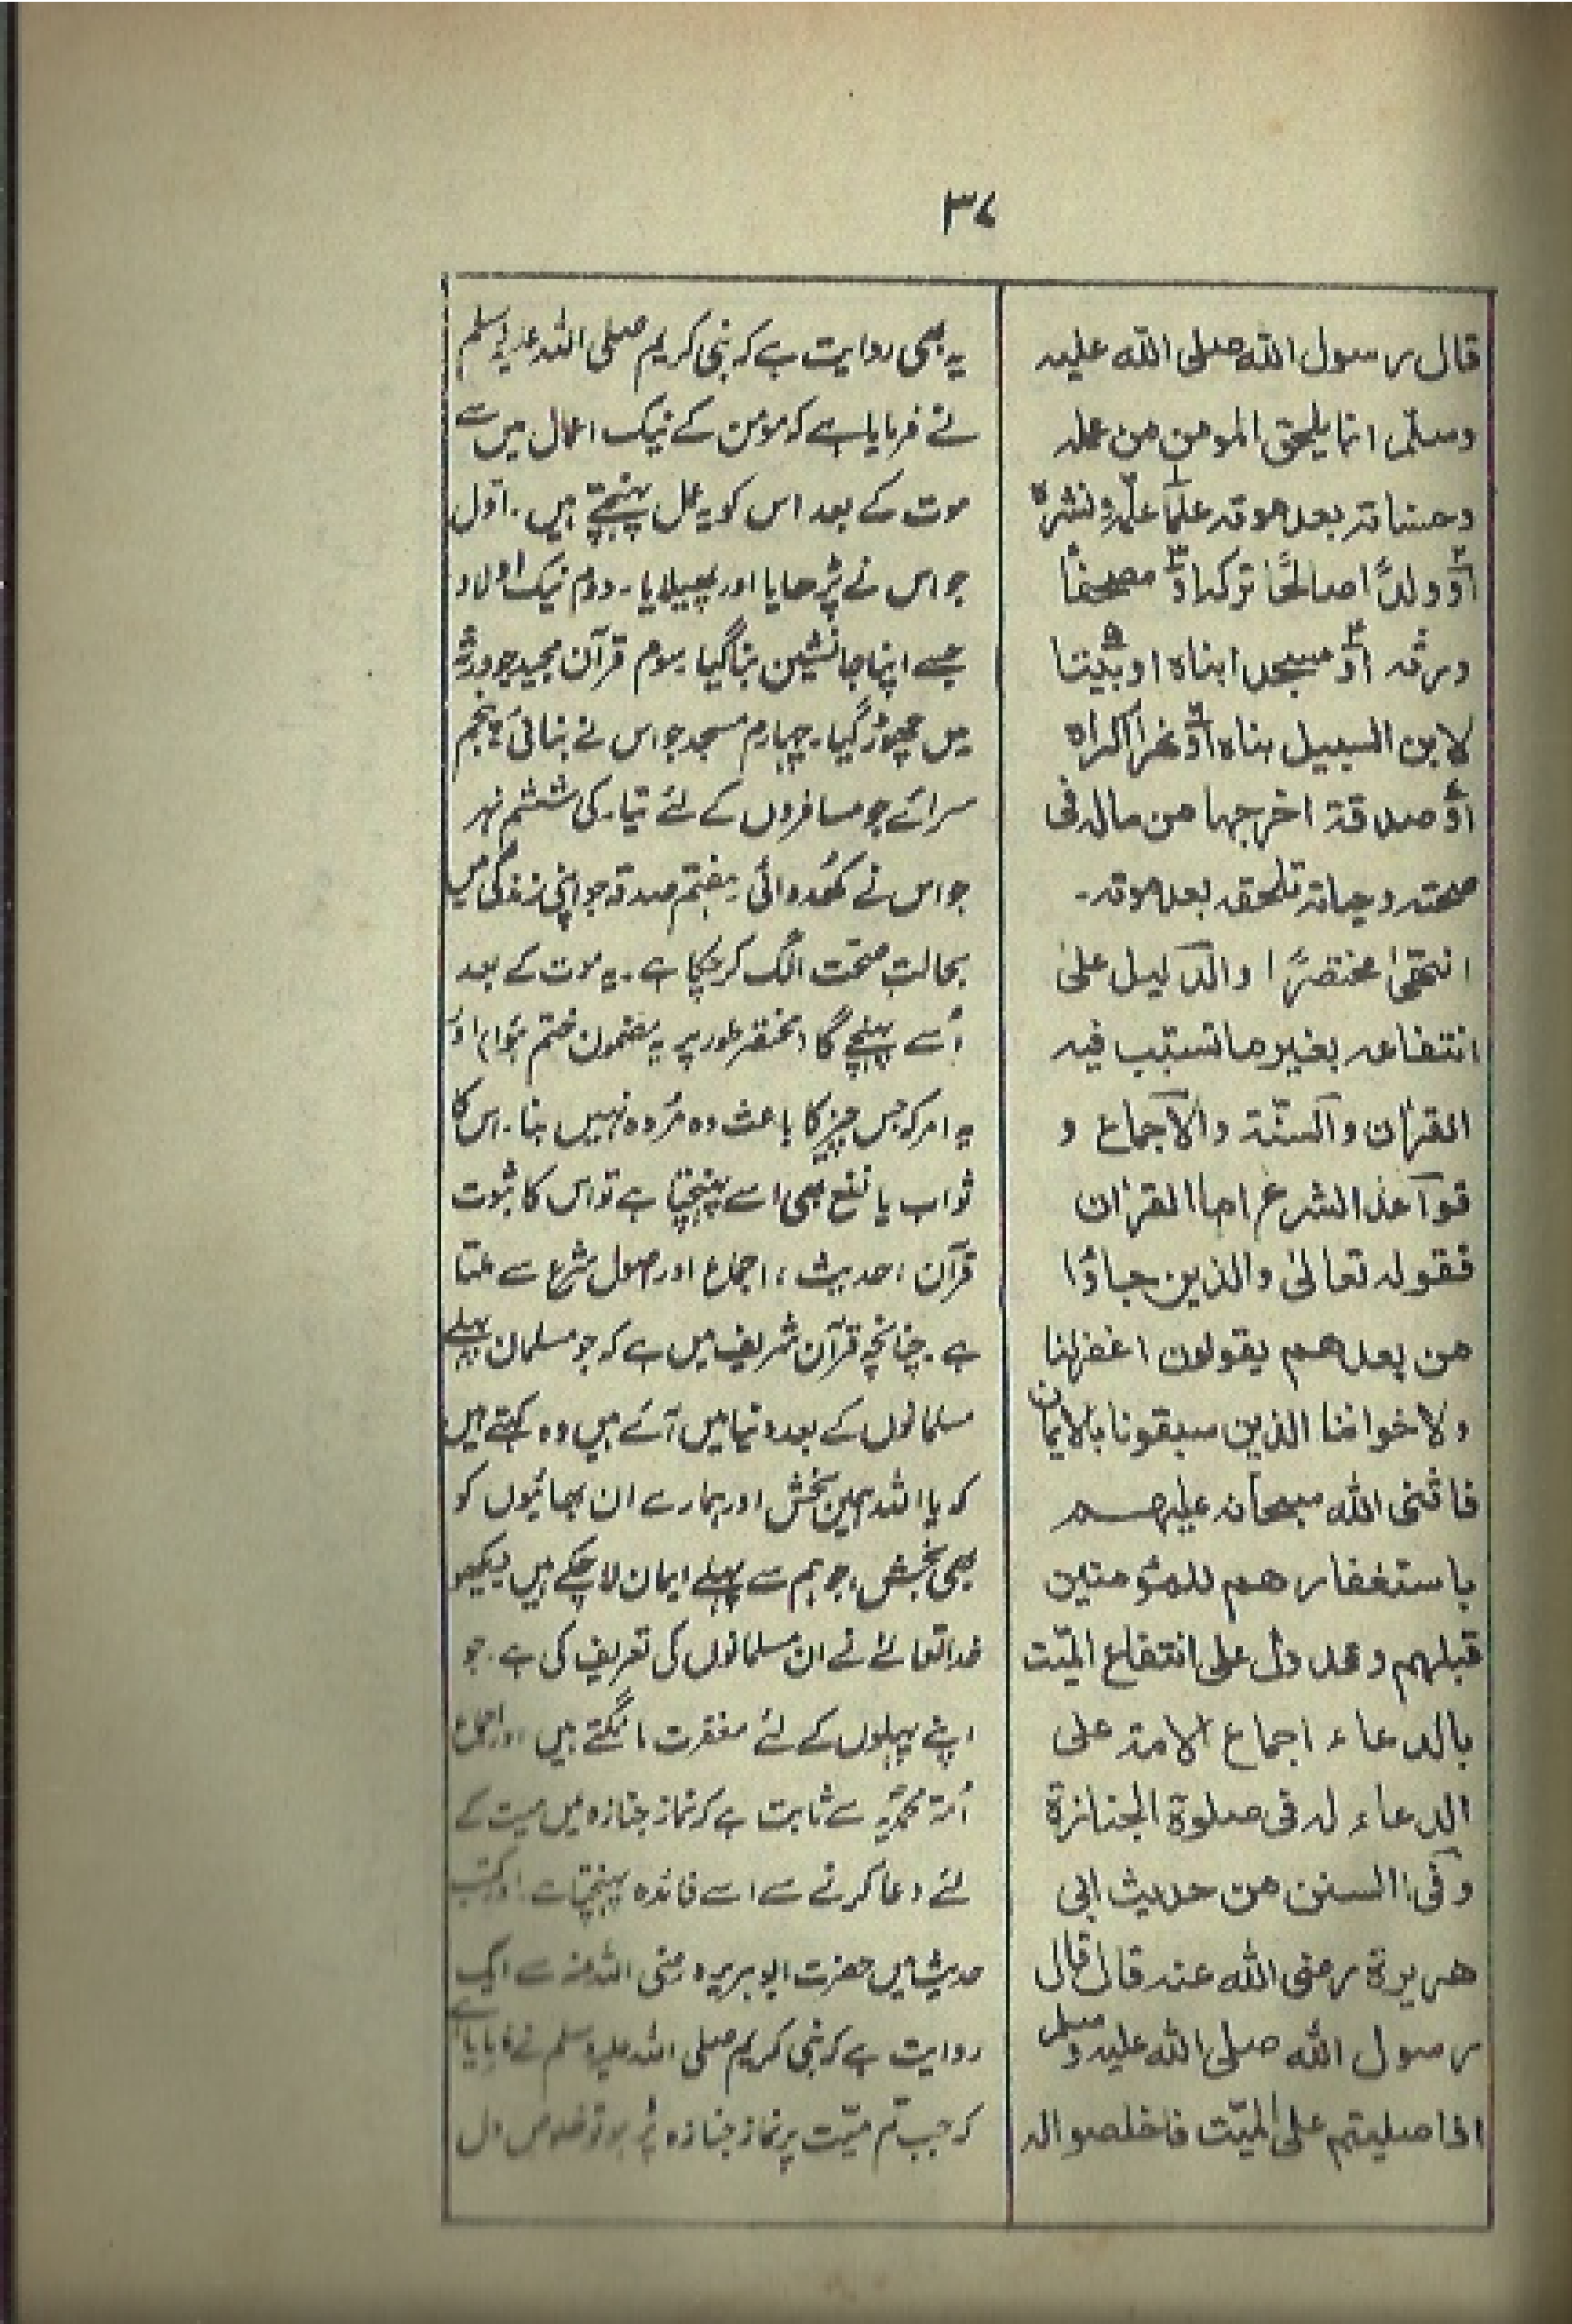 ۳۷
قال رسول الله صلی الله علیه
وسلم انما یلحق المومن من عمله
وحسناته بعد موته علمًا علّمه نشرہ
اَو ولدًا صالحًا ترکه اَو مصحفًا
ورثه اَو مسجدا بناه او بیتا
لابن السبیل بناه اَو نهرا اکراه
اَو صدقة اخرجها من ماله فی
صحته وحیاته تلحقه بعد موته۔
انتھیٰ مختصرًا والدلیل علیٰ
انتفاعه بغیر ما تسبّب فیه
القرآن والسنّة والاجماع و
قواعد الشرع اما القرآن
فقوله تعالیٰ والذین جاؤا
من بعدهم یقولون اغفرلنا
ولاخواننا الذین سبقونا بالایمان
فاثنی الله سبحانه علیهم
باستغفارهم للمؤمنین
قبلهم وقد دل علی انتفاع المیّت
بالدعاء اجماع الامة علی
الدعاء له فی صلوة الجنازة
وفی السنن من حدیث ابی
هریرة رضی الله عنه قال قال
رسول الله صلی الله علیه وسلم
اذا صلیتم علی المیّت فاخلصوا له
یہ بھی روایت ہے کہ نبی کریم صلی اللہ علیہ وسلم
نے فرمایا ہے کہ مومن کے نیک اعمال میں سے
موت کے بعد اس کو یہ عمل پہنچتے ہیں۔ اوّل
جو اس نے پڑھایا اور پھیلایا۔ دوم نیک اولاد
جسے اپنا جانشین بنا گیا۔ سوم قرآن مجید جو ورثہ
میں چھوڑ گیا۔ چہارم مسجد جو اس نے بنائی پنجم
سرائے جو مسافروں کے لئے تیار کی ششم نہر
جو اس نے کھدوائی۔ ہفتم صدقہ جو اپنی زندگی میں
بحالت صحّت الگ کر چکا ہے۔ یہ موت کے بعد
اُسے پہنچے گا (مختصر طور پر یہ مضمون ختم ہوا) اور
یہ امر کہ جس چیز کا باعث وہ مُردہ نہیں بنا۔ اس کا
ثواب یا نفع بھی اسے پہنچتا ہے تو اس کا ثبوت
قرآن، حدیث، اجماع اور اصول شرع سے ملتا
ہے۔ چنانچہ قرآن شریف میں ہے کہ جو مسلمان پہلے
مسلمانوں کے بعد دنیا میں آئے ہیں وہ کہتے ہیں
کہ یا اللہ ہمیں بخش اور ہمارے ان بھائیوں کو
بھی بخش، جو ہم سے پہلے ایمان لا چکے ہیں دیکھو
خدا تعالےٰ نے ان مسلمانوں کی تعریف کی ہے۔ جو
اپنے پہلوں کے لئے مغفرت مانگتے ہیں۔ اور اجماع
اُمت محمدیّہ سے ثابت ہے کہ نماز جنازہ میں میت کے
لئے دعا کرنے سے اسے فائدہ پہنچتا ہے۔ اور کتب
حدیث میں حضرت ابو ہریرہ رضی اللہ عنہ سے ایک
روایت ہے کہ نبی کریم صلی اللہ علیہ وسلم نے فرمایا ہے
کہ جب تم میّت پر نماز جنازہ پڑہو تو خلوص دل